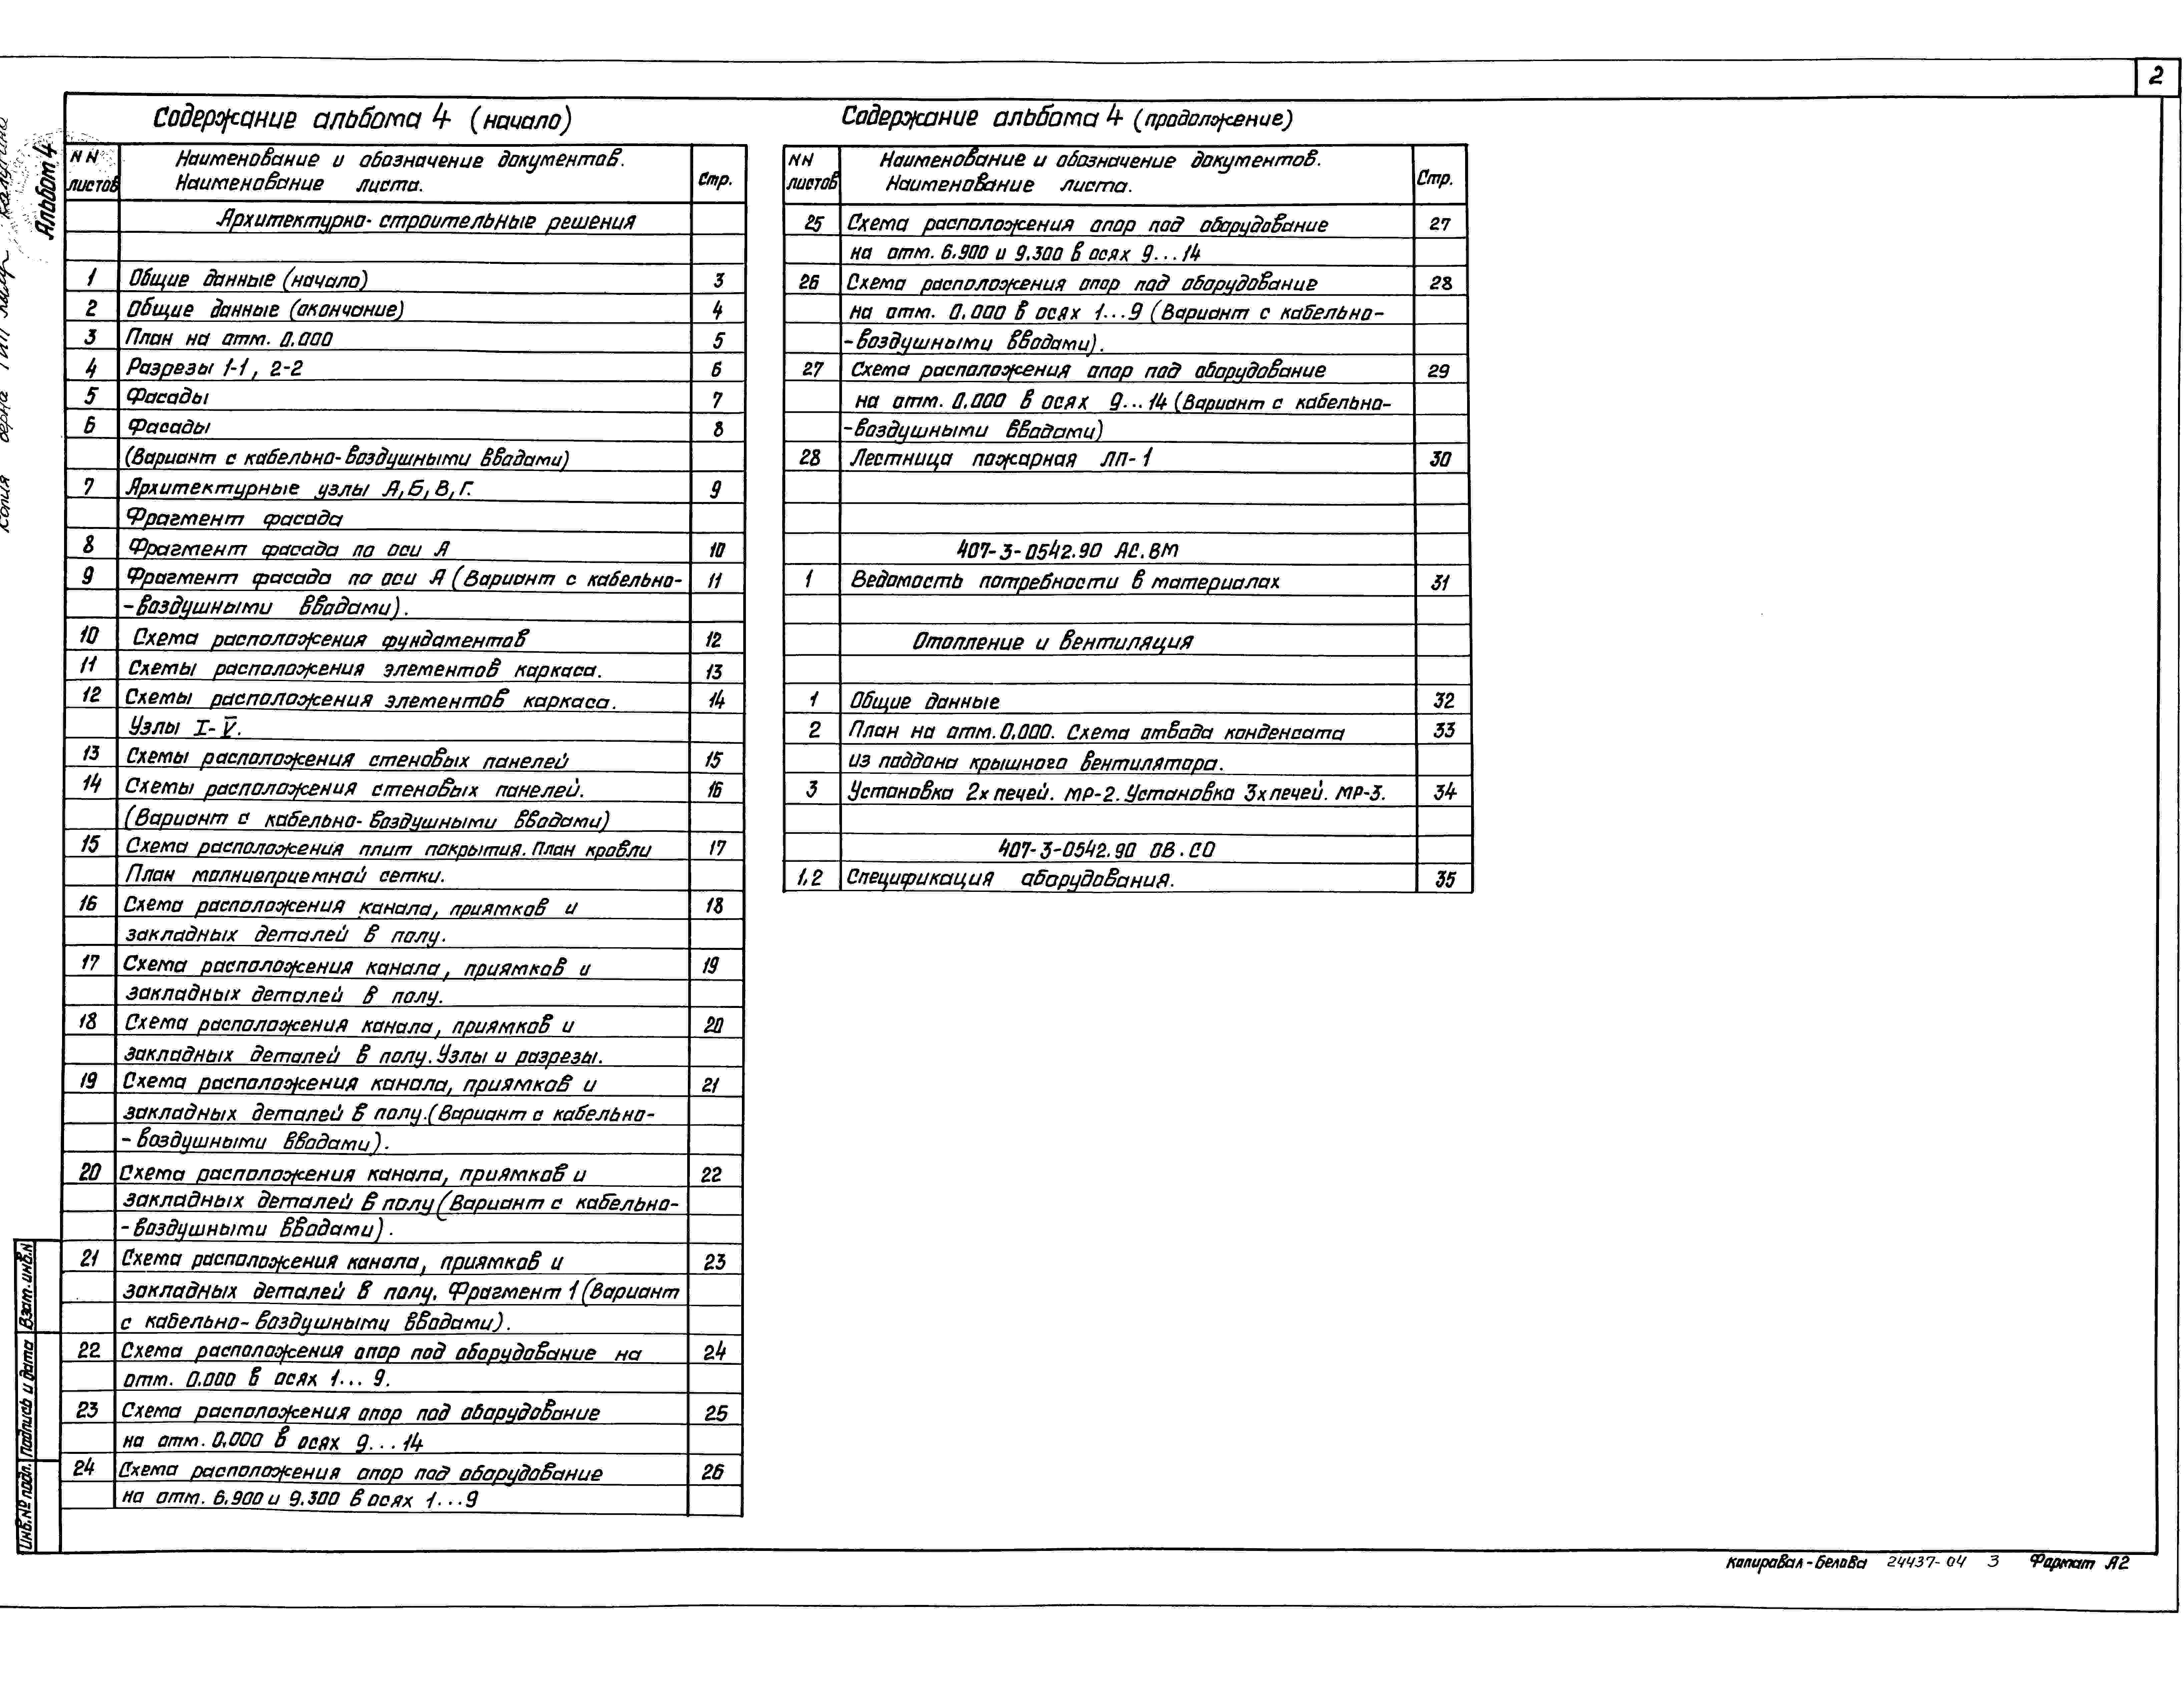 2
Альбом 4
Содержание альбома 4 (начало)
NN листов
Наименование и обозначение документов.
Наименование листа.
Стр.
Архитектурно-строительные решения
1 Общие данные (начало) 3
2 Общие данные (окончание) 4
3 План на отм. 0.000 5
4 Разрезы 1-1, 2-2 6
5 Фасады 7
6 Фасады 8
(Вариант с кабельно-воздушными вводами)
7 Архитектурные узлы А, Б, В, Г. 9
Фрагмент фасада
8 Фрагмент фасада по оси А 10
9 Фрагмент фасада по оси А (Вариант с кабельно- 11
-воздушными вводами).
10 Схема расположения фундаментов 12
11 Схемы расположения элементов каркаса. 13
12 Схемы расположения элементов каркаса. 14
Узлы I-V.
13 Схемы расположения стеновых панелей 15
14 Схемы расположения стеновых панелей. 16
(Вариант с кабельно-воздушными вводами)
15 Схема расположения плит покрытия. План кровли 17
План молниеприемной сетки.
16 Схема расположения канала, приямков и 18
закладных деталей в полу.
17 Схема расположения канала, приямков и 19
закладных деталей в полу.
18 Схема расположения канала, приямков и 20
закладных деталей в полу. Узлы и разрезы.
19 Схема расположения канала, приямков и 21
закладных деталей в полу. (Вариант с кабельно-
-воздушными вводами).
20 Схема расположения канала, приямков и 22
закладных деталей в полу (Вариант с кабельно-
-воздушными вводами).
21 Схема расположения канала, приямков и 23
закладных деталей в полу. Фрагмент 1 (Вариант
с кабельно-воздушными вводами).
22 Схема расположения опор под оборудование на 24
отм. 0.000 в осях 1...9.
23 Схема расположения опор под оборудование 25
на отм. 0.000 в осях 9...14
24 Схема расположения опор под оборудование 26
на отм. 6.900 и 9.300 в осях 1...9
Содержание альбома 4 (продолжение)
NN листов
Наименование и обозначение документов.
Наименование листа.
Стр.
25 Схема расположения опор под оборудование 27
на отм. 6.900 и 9.300 в осях 9...14
26 Схема расположения опор под оборудование 28
на отм. 0.000 в осях 1...9 (Вариант с кабельно-
-воздушными вводами).
27 Схема расположения опор под оборудование 29
на отм. 0.000 в осях 9...14 (Вариант с кабельно-
-воздушными вводами)
28 Лестница пожарная ЛП-1 30
407-3-0542.90 АС.ВМ
1 Ведомость потребности в материалах 31
Отопление и вентиляция
1 Общие данные 32
2 План на отм. 0.000. Схема отвода конденсата 33
из поддона крышного вентилятора.
3 Установка 2х печей. МР-2. Установка 3х печей. МР-3. 34
407-3-0542.90 ОВ.СО
1.2 Спецификация оборудования. 35
Взам. инв. N
Подпись и дата
Инв. № подл.
Копия верна ГИП
Копировал-Белова 24437-04 3 Формат А2